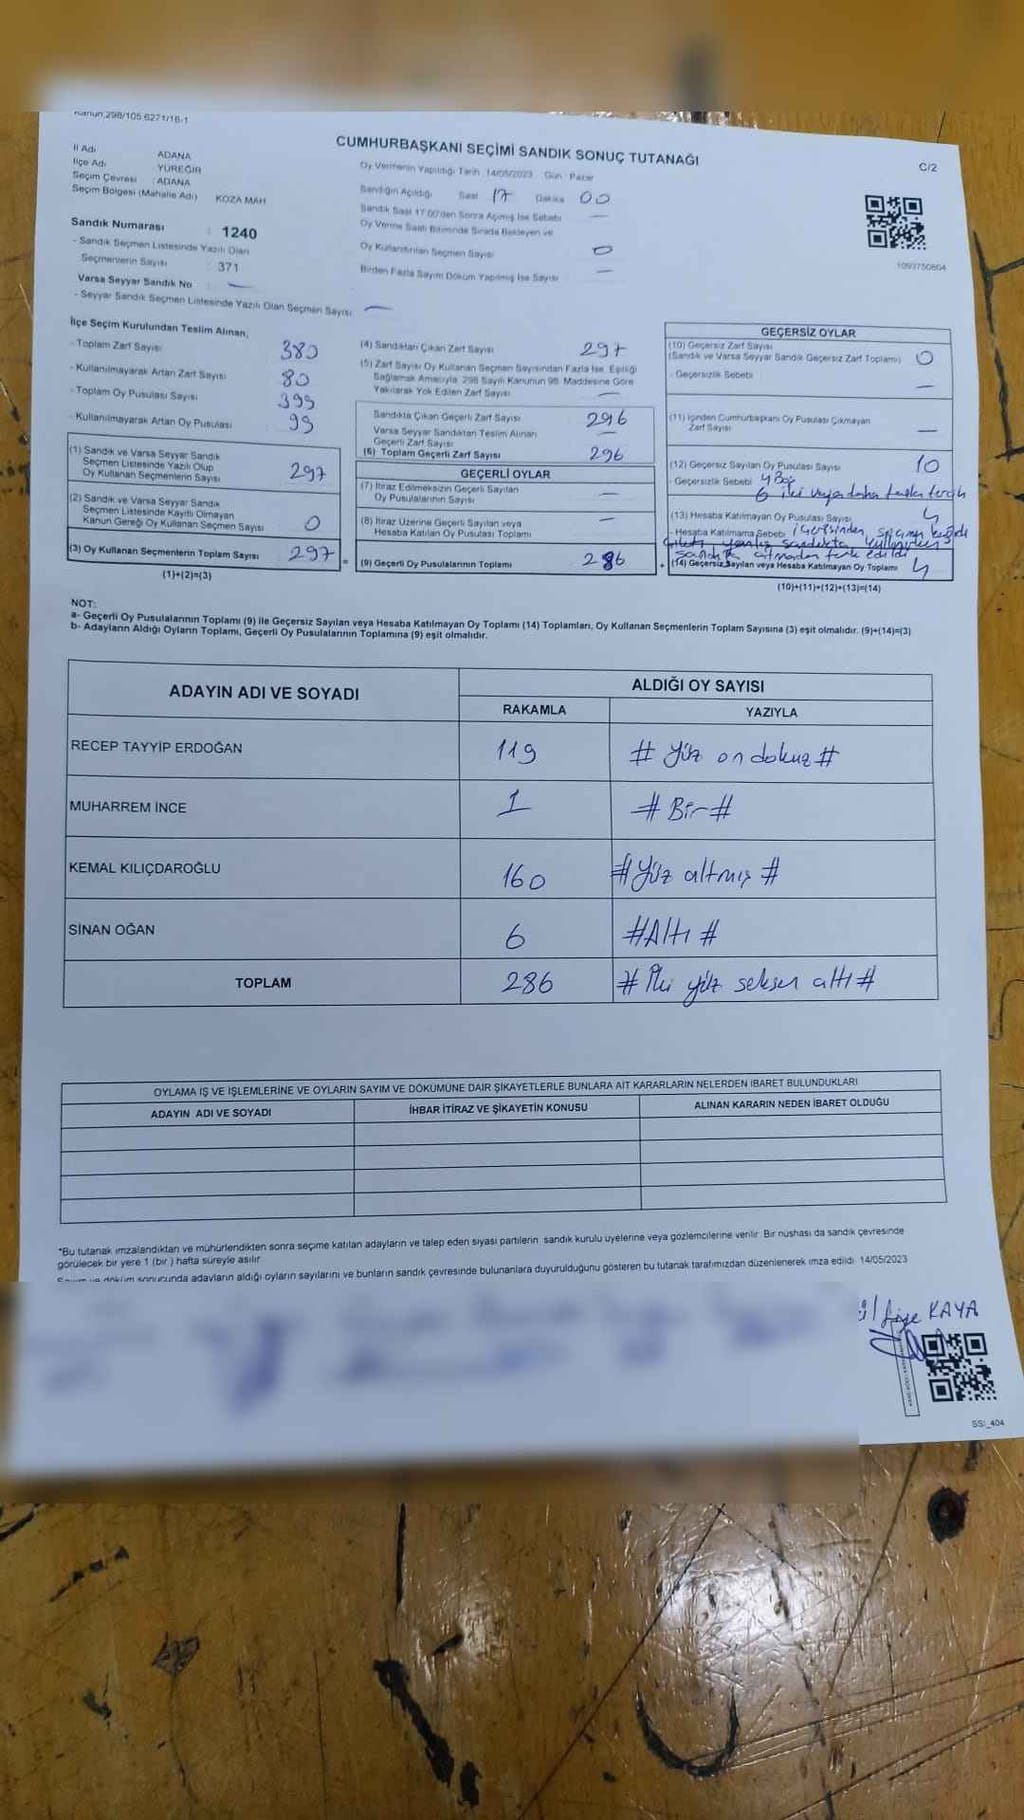 Kanun:298/105 6271/16-1
CUMHURBAŞKANI SEÇİMİ SANDIK SONUÇ TUTANAĞI
C/2
İl Adı ADANA
İlçe Adı YÜREĞİR
Seçim Çevresi : ADANA
Seçim Bölgesi (Mahalle Adı) KOZA MAH
Oy Vermenin Yapıldığı Tarih 14/05/2023 Gün : Pazar
Sandığın Açıldığı Saat 17 Dakika 00
Sandık Saat 17:00'den Sonra Açılmış İse Sebebi —
Oy Verme Saati Bitiminde Sırada Bekleyen ve
Oy Kullandırılan Seçmen Sayısı 0
Birden Fazla Sayım Döküm Yapılmış İse Sayısı —
1093750804
Sandık Numarası : 1240
- Sandık Seçmen Listesinde Yazılı Olan
Seçmenlerin Sayısı : 371
Varsa Seyyar Sandık No : —
- Seyyar Sandık Seçmen Listesinde Yazılı Olan Seçmen Sayısı: —
İlçe Seçim Kurulundan Teslim Alınan;
- Toplam Zarf Sayısı 380
- Kullanılmayarak Artan Zarf Sayısı 80
- Toplam Oy Pusulası Sayısı 399
- Kullanılmayarak Artan Oy Pusulası 99
(1) Sandık ve Varsa Seyyar Sandık
Seçmen Listesinde Yazılı Olup
Oy Kullanan Seçmenlerin Sayısı 297
(2) Sandık ve Varsa Seyyar Sandık
Seçmen Listesinde Kayıtlı Olmayan
Kanun Gereği Oy Kullanan Seçmen Sayısı 0
(3) Oy Kullanan Seçmenlerin Toplam Sayısı 297 =
(1)+(2)=(3)
(4) Sandıktan Çıkan Zarf Sayısı 297
(5) Zarf Sayısı Oy Kullanan Seçmen Sayısından Fazla İse, Eşitliği
Sağlamak Amacıyla, 298 Sayılı Kanunun 98. Maddesine Göre
Yakılarak Yok Edilen Zarf Sayısı —
Sandıkta Çıkan Geçerli Zarf Sayısı 296
Varsa Seyyar Sandıktan Teslim Alınan
Geçerli Zarf Sayısı —
(6) Toplam Geçerli Zarf Sayısı 296
GEÇERLİ OYLAR
(7) İtiraz Edilmeksizin Geçerli Sayılan
Oy Pusulalarının Sayısı —
(8) İtiraz Üzerine Geçerli Sayılan veya
Hesaba Katılan Oy Pusulası Toplamı —
(9) Geçerli Oy Pusulalarının Toplamı 286 +
GEÇERSİZ OYLAR
(10) Geçersiz Zarf Sayısı
(Sandık ve Varsa Seyyar Sandık Geçersiz Zarf Toplamı) 0
- Geçersizlik Sebebi —
(11) İçinden Cumhurbaşkanı Oy Pusulası Çıkmayan
Zarf Sayısı —
(12) Geçersiz Sayılan Oy Pusulası Sayısı 10
- Geçersizlik Sebebi 4 Boş
6 iki veya daha fazla tercih
(13) Hesaba Katılmayan Oy Pusulası Sayısı
- Hesaba Katılmama Sebebi içerisinden seçmen
sandıkta
sandık atmadan terk edildi
(14) Geçersiz Sayılan veya Hesaba Katılmayan Oy Toplamı
(10)+(11)+(12)+(13)=(14)
NOT:
a- Geçerli Oy Pusulalarının Toplamı (9) ile Geçersiz Sayılan veya Hesaba Katılmayan Oy Toplamı (14) Toplamları, Oy Kullanan Seçmenlerin Toplam Sayısına (3) eşit olmalıdır. (9)+(14)=(3)
b- Adayların Aldığı Oyların Toplamı, Geçerli Oy Pusulalarının Toplamına (9) eşit olmalıdır.
ADAYIN ADI VE SOYADI ALDIĞI OY SAYISI
RAKAMLA YAZIYLA
RECEP TAYYİP ERDOĞAN 119 # Yüz on dokuz #
MUHARREM İNCE 1 # Bir #
KEMAL KILIÇDAROĞLU 160 # Yüz altmış #
SİNAN OĞAN 6 # Altı #
TOPLAM 286 # İki yüz seksen altı #
OYLAMA İŞ VE İŞLEMLERİNE VE OYLARIN SAYIM VE DÖKÜMÜNE DAİR ŞİKAYETLERLE BUNLARA AİT KARARLARIN NELERDEN İBARET BULUNDUKLARI
ADAYIN ADI VE SOYADI İHBAR İTİRAZ VE ŞİKAYETİN KONUSU ALINAN KARARIN NEDEN İBARET OLDUĞU
*Bu tutanak imzalandıktan ve mühürlendikten sonra seçime katılan adayların ve talep eden siyasi partilerin sandık kurulu üyelerine veya gözlemcilerine verilir. Bir nüshası da sandık çevresinde
görülecek bir yere 1 (bir ) hafta süreyle asılır.
Sayım ve döküm sonucunda adayların aldığı oyların sayılarını ve bunların sandık çevresinde bulunanlara duyurulduğunu gösteren bu tutanak tarafımızdan düzenlenerek imza edildi. 14/05/2023
KAYA
SSİ_404